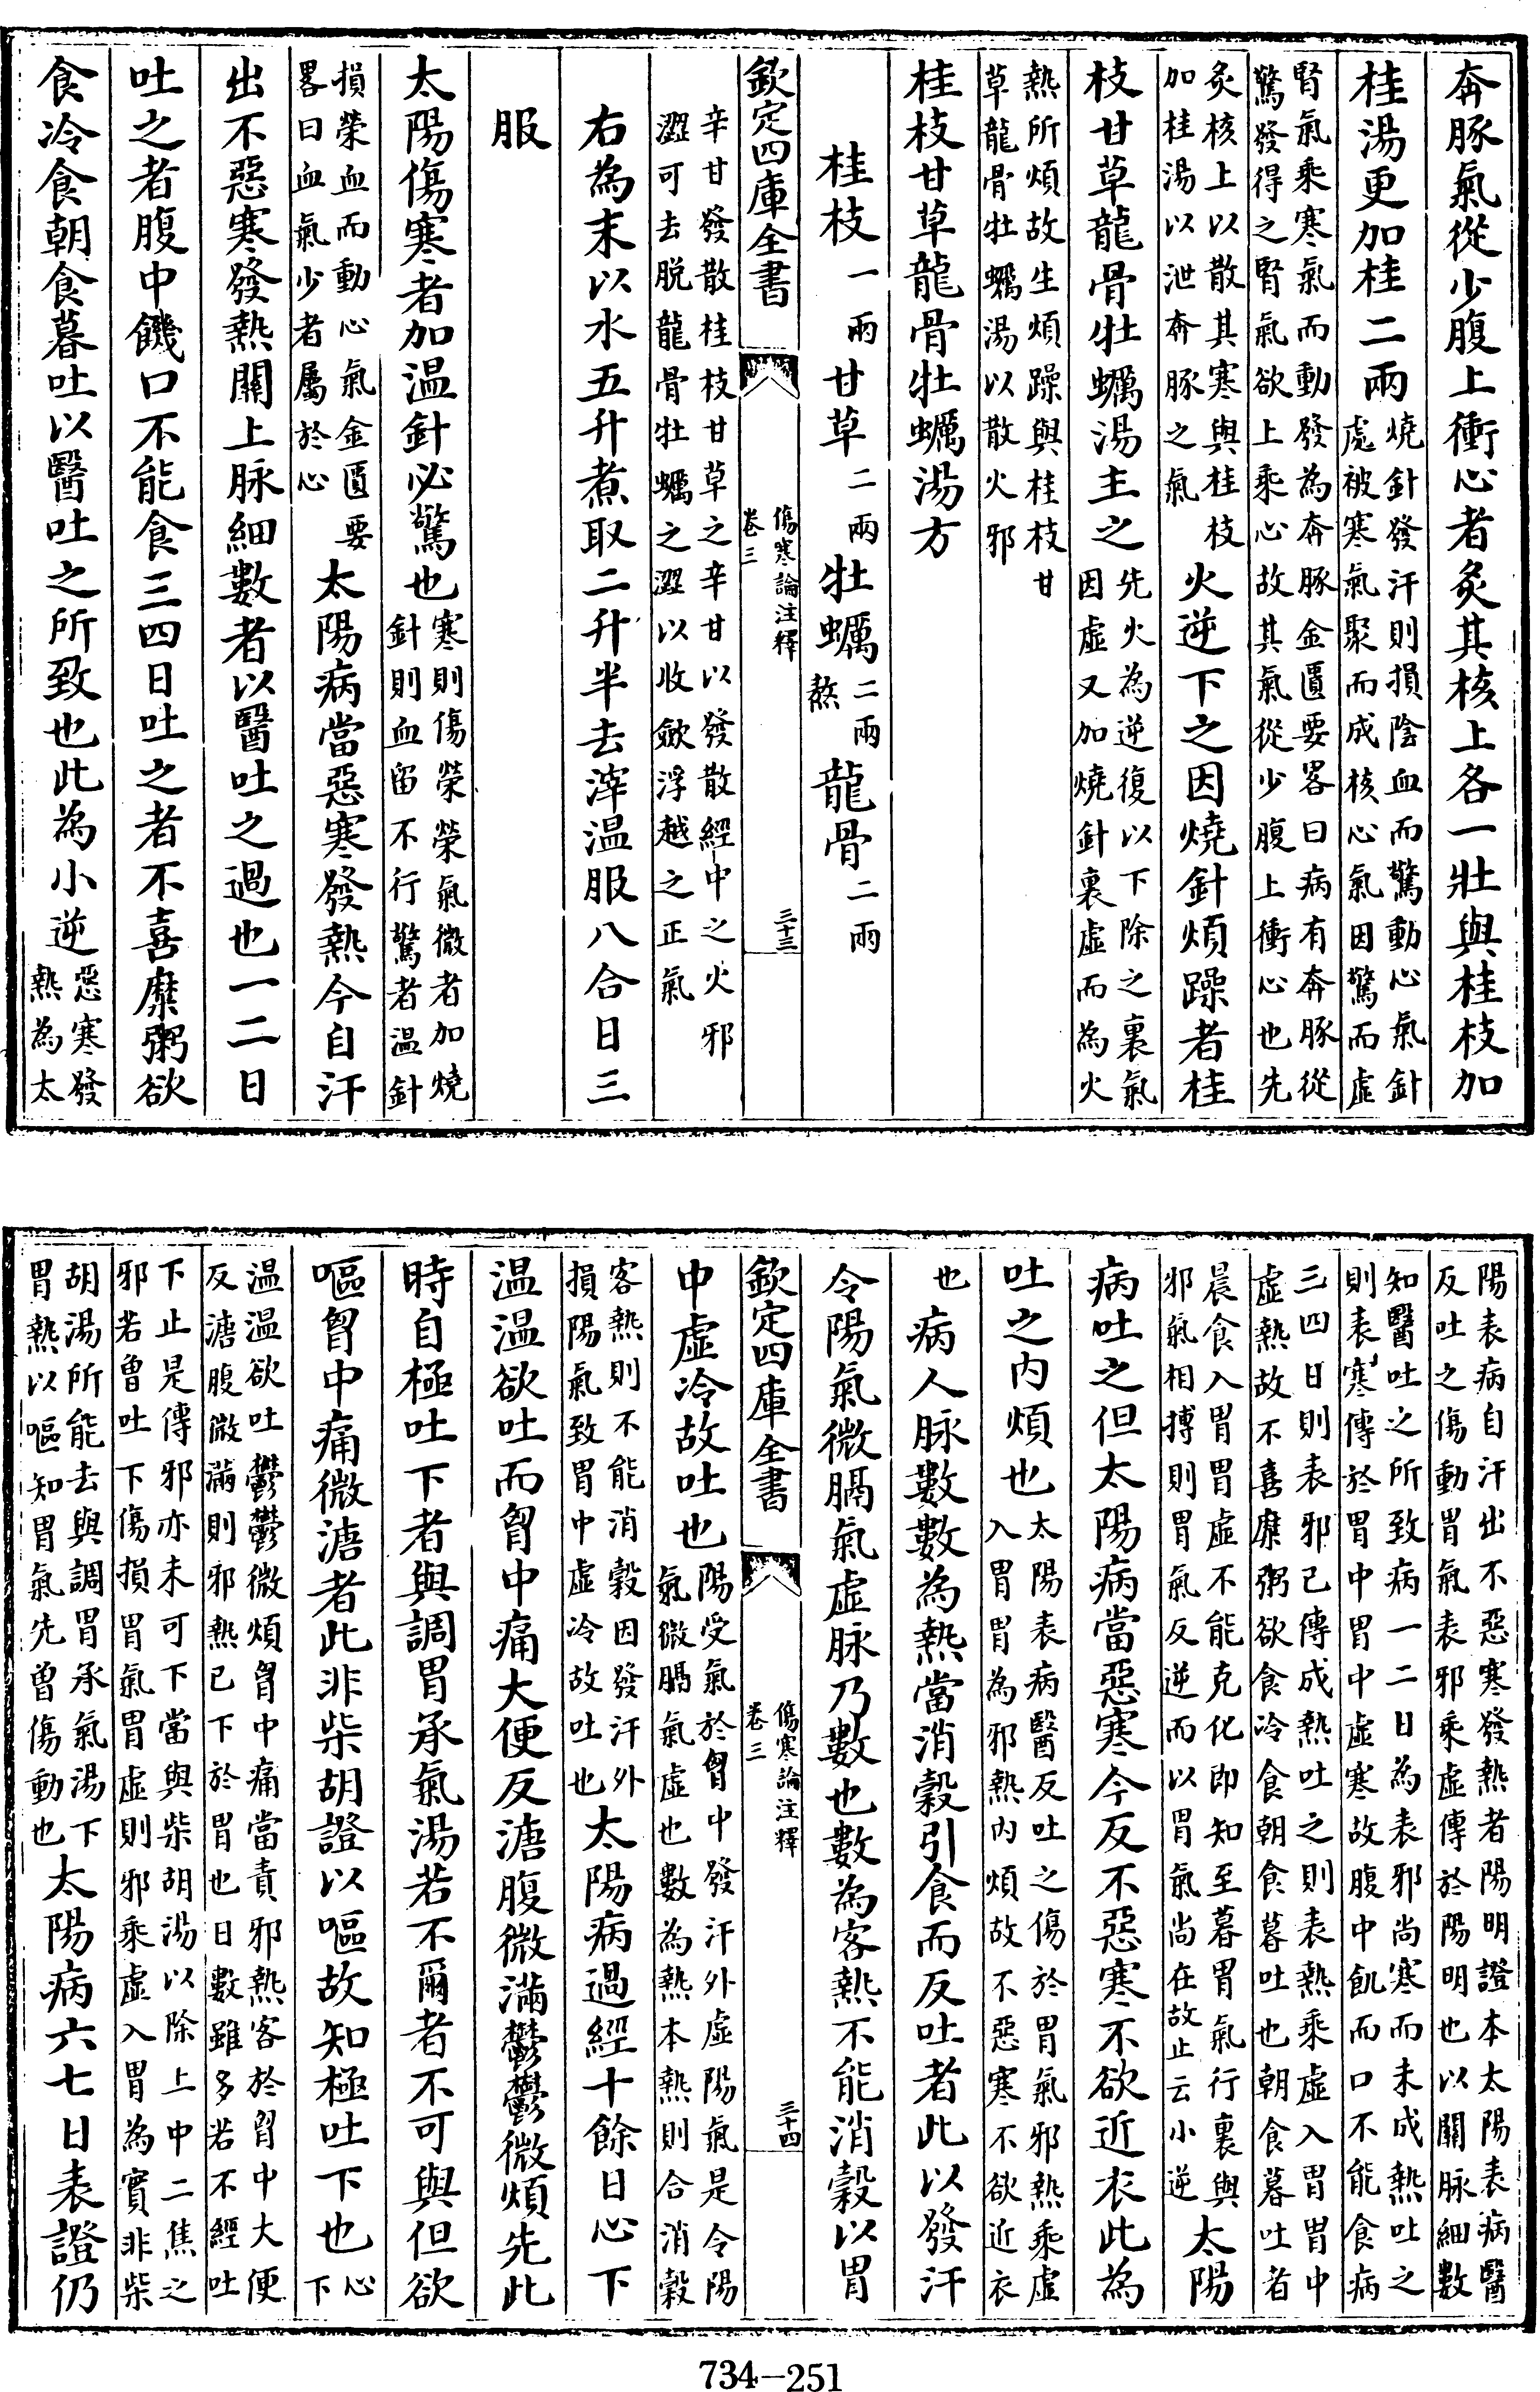 奔豚氣從少腹上衝心者灸其核上各一壯與桂枝加
桂湯更加桂二兩燒針發汗則損陰血而驚動心氣針
處被寒氣聚而成核心氣因驚而虛
腎氣乘寒氣而動發為奔豚金匱要畧曰病有奔豚從
驚發得之腎氣欲上乘心故其氣從少腹上衝心也先
灸核上以散其寒與桂枝
加桂湯以泄奔豚之氣
火逆下之因燒針煩躁者桂
枝甘草龍骨牡蠣湯主之先火為逆復以下除之裏氣
因虛又加燒針裏虛而為火
熱所煩故生煩躁與桂枝甘
草龍骨牡蠣湯以散火邪
桂枝甘草龍骨牡蠣湯方
桂枝一兩甘草二兩牡蠣二兩
熬
龍骨二兩
欽定四庫全書
傷寒論注釋
卷三
三十三
辛甘發散桂枝甘草之辛甘以發散經中之火邪
澀可去脫龍骨牡蠣之澀以收斂浮越之正氣
右為末以水五升煮取二升半去滓温服八合日三
服
太陽傷寒者加温針必驚也寒則傷榮榮氣微者加燒
針則血留不行驚者温針
損榮血而動心氣金匱要
畧曰血氣少者屬於心
太陽病當惡寒發熱今自汗
出不惡寒發熱關上脉細數者以醫吐之過也一二日
吐之者腹中饑口不能食三四日吐之者不喜糜粥欲
食冷食朝食暮吐以醫吐之所致也此為小逆惡寒發
熱為太
陽表病自汗出不惡寒發熱者陽明證本太陽表病醫
反吐之傷動胃氣表邪乘虛傳於陽明也以關脉細數
知醫吐之所致病一二日為表邪尚寒而未成熱吐之
則表寒傳於胃中胃中虛寒故腹中飢而口不能食病
三四日則表邪已傳成熱吐之則表熱乘虛入胃胃中
虛熱故不喜糜粥欲食冷食朝食暮吐也朝食暮吐者
晨食入胃胃虛不能克化即知至暮胃氣行裏與
邪氣相搏則胃氣反逆而以胃氣尚在故止云小逆
太陽
病吐之但太陽病當惡寒今反不惡寒不欲近衣此為
吐之内煩也太陽表病醫反吐之傷於胃氣邪熱乘虛
入胃胃為邪熱内煩故不惡寒不欲近衣
也
病人脉數數為熱當消穀引食而反吐者此以發汗
令陽氣微膈氣虛脉乃數也數為客熱不能消穀以胃
欽定四庫全書
傷寒論注釋
卷三
三十四
中虛冷故吐也陽受氣於胷中發汗外虛陽氣是令陽
氣微膈氣虛也數為熱本熱則合消穀
客熱則不能消穀因發汗外
損陽氣致胃中虛冷故吐也
太陽病過經十餘日心下
温温欲吐而胷中痛大便反溏腹微滿鬱鬱微煩先此
時自極吐下者與調胃承氣湯若不爾者不可與但欲
嘔胷中痛微溏者此非柴胡證以嘔故知極吐下也心
下
温温欲吐鬱鬱微煩胷中痛當責邪熱客於胷中大便
反溏腹微滿則邪熱已下於胃也日數雖多若不經吐
下止是傳邪亦未可下當與柴胡湯以除上中二焦之
邪若曾吐下傷損胃氣胃虛則邪乘虛入胃為實非柴
胡湯所能去與調胃承氣湯下
胃熱以嘔知胃氣先曾傷動也
太陽病六七日表證仍
734-251